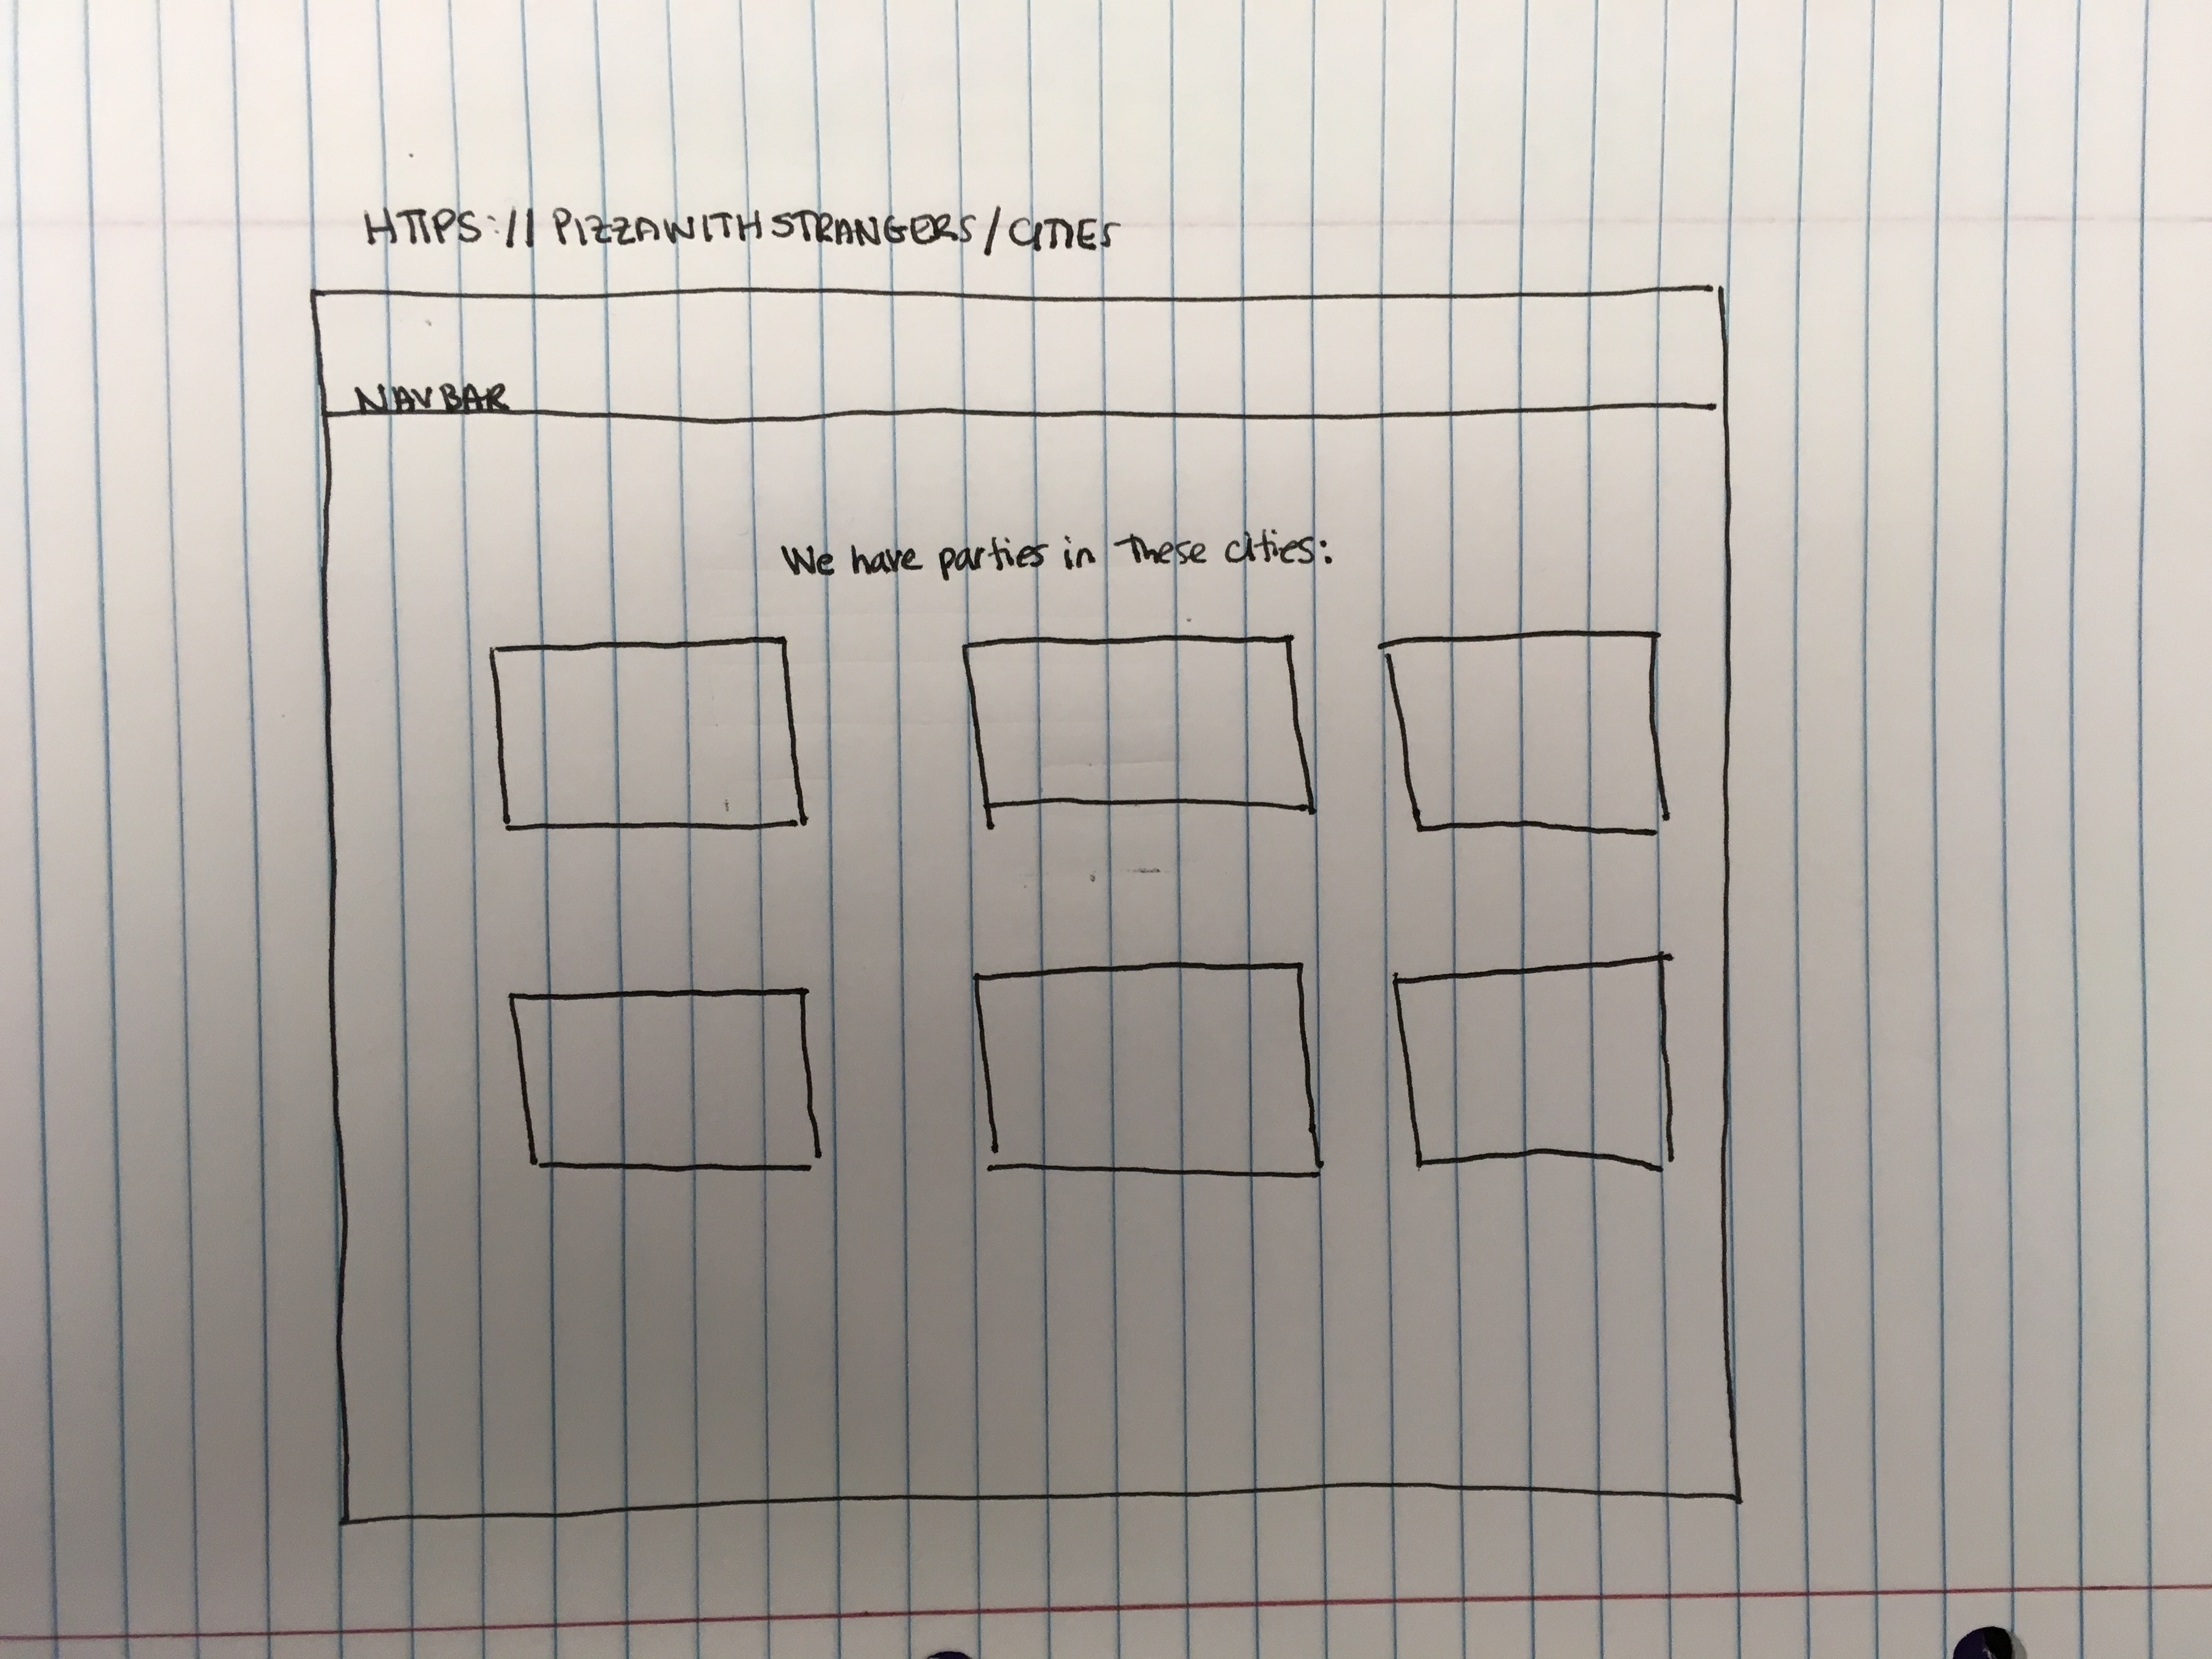 HTTPS://PIZZAWITHSTRANGERS/CITIES
NAVBAR
We have parties in These cities: